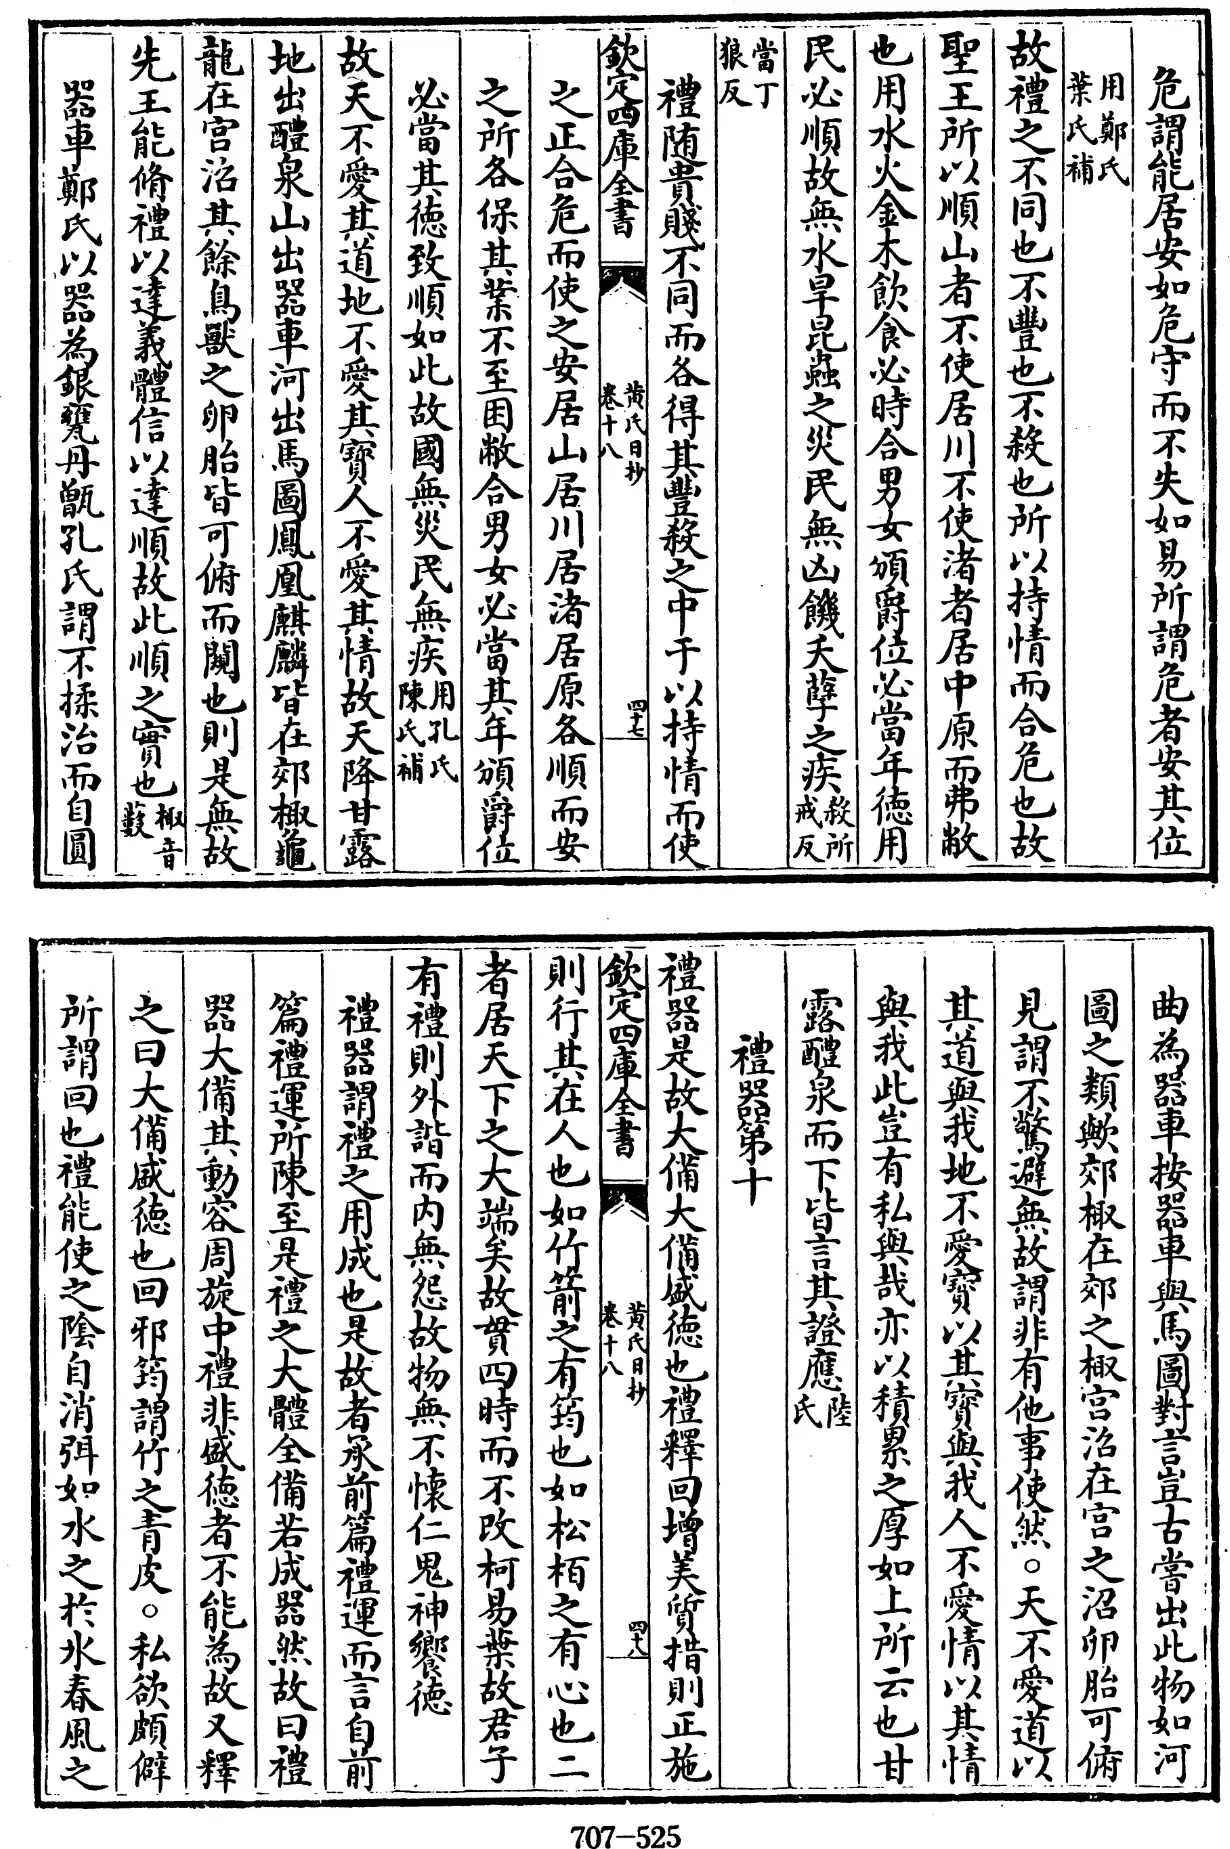 危謂能居安如危守而不失如易所謂危者安其位
用鄭氏
葉氏補
故禮之不同也不豐也不殺也所以持情而合危也故
聖王所以順山者不使居川不使渚者居中原而弗敝
也用水火金木飲食必時合男女頒爵位必當年德用
民必順故無水旱昆蟲之災民無凶饑夭孽之疾
殺所
戒反
當丁
狼反
禮随貴賤不同而各得其豐殺之中于以持情而使
欽定四庫全書
黄氏日抄
卷十八
四十七
之正合危而使之安居山居川居渚居原各順而安
之所各保其業不至困敝合男女必當其年頒爵位
必當其德致順如此故國無災民無疾
用孔氏
陳氏補
故天不愛其道地不愛其寶人不愛其情故天降甘露
地出醴泉山出器車河出馬圖鳳凰麒麟皆在郊棷龜
龍在宫沼其餘鳥獸之卵胎皆可俯而闚也則是無故
先王能脩禮以達義體信以達順故此順之實也
棷音
藪
器車鄭氏以器為銀甕丹甑孔氏謂不揉治而自圓
曲為器車按器車與馬圖對言豈古嘗出此物如河
圖之類歟郊棷在郊之棷宫沼在宫之沼卵胎可俯
見謂不驚避無故謂非有他事使然○天不愛道以
其道與我地不愛寶以其寶與我人不愛情以其情
與我此豈有私與哉亦以積累之厚如上所云也甘
露醴泉而下皆言其證應
陸
氏
禮器第十
禮器是故大備大備盛德也禮釋回增美質措則正施
欽定四庫全書
黄氏日抄
卷十八
四十八
則行其在人也如竹箭之有筠也如松栢之有心也二
者居天下之大端矣故貫四時而不改柯易葉故君子
有禮則外諧而内無怨故物無不懷仁鬼神饗德
禮器謂禮之用成也是故者承前篇禮運而言自前
篇禮運所陳至是禮之大體全備若成器然故曰禮
器大備其動容周旋中禮非盛德者不能為故又釋
之曰大備盛德也回邪筠謂竹之青皮○私欲頗僻
所謂回也禮能使之隂自消弭如水之於氷春風之
707-525